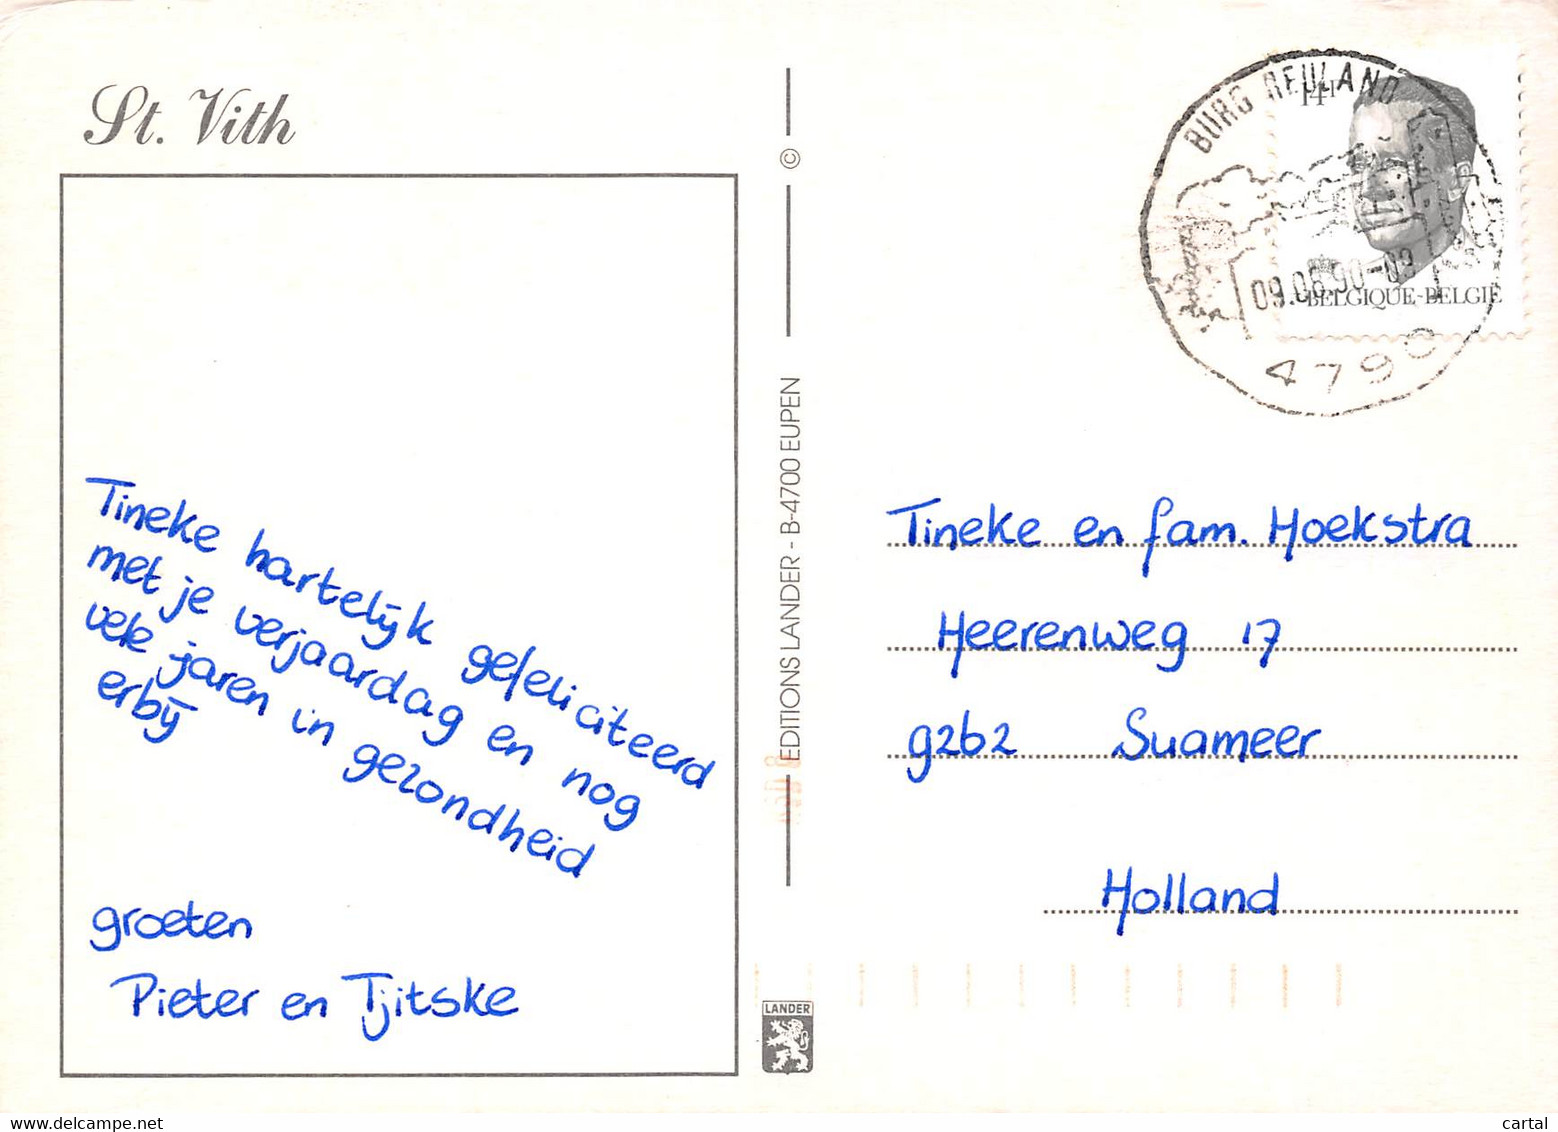 St. Vith
Tineke hartelijk gefeliciteerd
met je verjaardag en nog
vele jaren in gezondheid
erbij
groeten
Pieter en Tjitske
© EDITIONS LANDER - B-4700 EUPEN
LANDER
BURG REULAND
14F
09.08.90-09
BELGIQUE-BELGIË
4790
Tineke en fam. Hoekstra
Heerenweg 17
9262 Suameer
Holland
cartal